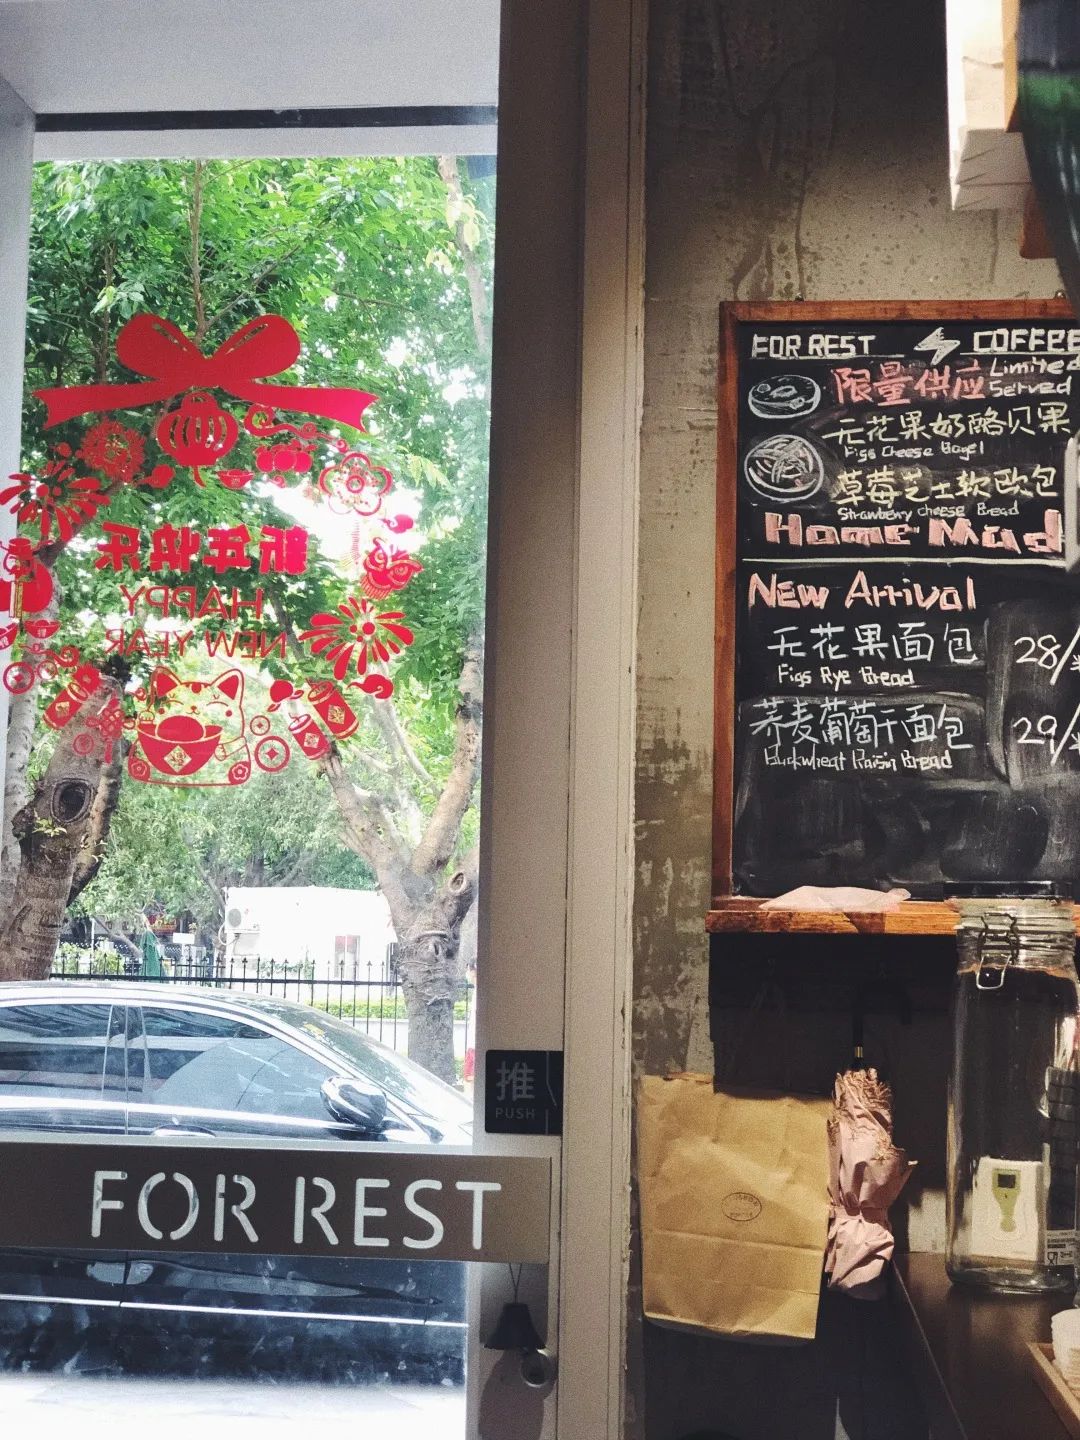 新年快乐
HAPPY
NEW YEAR
推
PUSH
FOR REST
FOR REST COFFEE
限量供应 Limited Served
无花果奶酪贝果
Figs Cheese Bagel
草莓芝士软欧包
Strawberry Cheese Bread
Home Mad
New Arrival
无花果面包 28/
Figs Rye Bread
荞麦葡萄干面包 29/
Buckwheat Raisin Bread